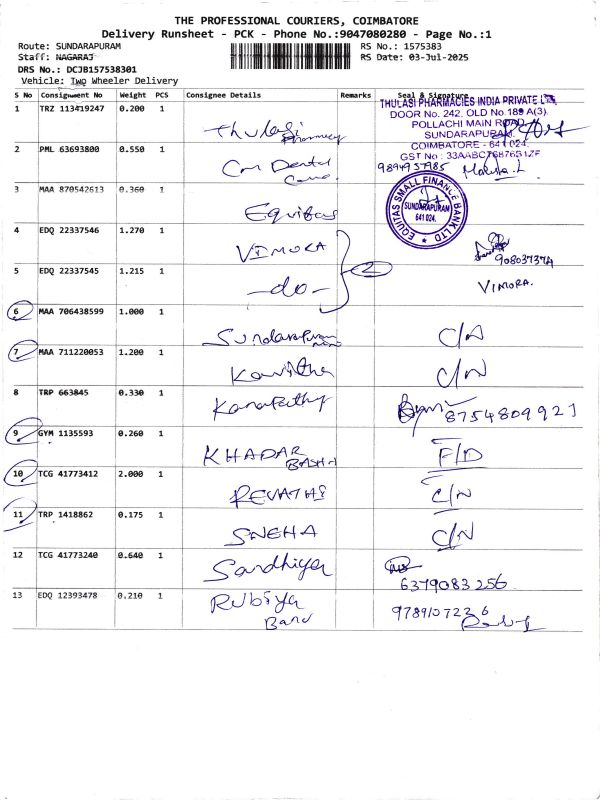 THE PROFESSIONAL COURIERS, COIMBATORE
Delivery Runsheet - PCK - Phone No.:9047080280 - Page No.:1
Route: SUNDARAPURAM
RS No.: 1575383
Staff: NAGARAJ
RS Date: 03-Jul-2025
DRS No.: DCJB157538301
Vehicle: Two Wheeler Delivery
S No Consignment No Weight PCS Consignee Details Remarks Seal & Signature
1 TRZ 113419247 0.200 1 Thulasi Pharmacy
THULASI PHARMACIES INDIA PRIVATE LTD.
DOOR No. 242, OLD No.189 A(3),
POLLACHI MAIN ROAD,
SUNDARAPURAM,
COIMBATORE - 641 024.
GST No : 33AABCT6876G1ZF
2 PML 63693800 0.550 1 Dental
3 MAA 870542613 0.360 1 Equitas
EQUITAS SMALL FINANCE BANK LTD
SUNDARAPURAM
641 024.
4 EDQ 22337546 1.270 1 VIMORA
2
5 EDQ 22337545 1.215 1 -do- VIMORA.
6 MAA 706438599 1.000 1 Sundarapuram C/N
7 MAA 711220053 1.200 1 Kavitha C/N
8 TRP 663845 0.330 1 8754809921
9 GYM 1135593 0.260 1 KHADAR BASHA F/D
10 TCG 41773412 2.000 1 REVATHI C/N
11 TRP 1418862 0.175 1 SNEHA C/N
12 TCG 41773240 0.640 1 Sandhiya 6379083256
13 EDQ 12393478 0.210 1 Rubiya Banu 9789107226